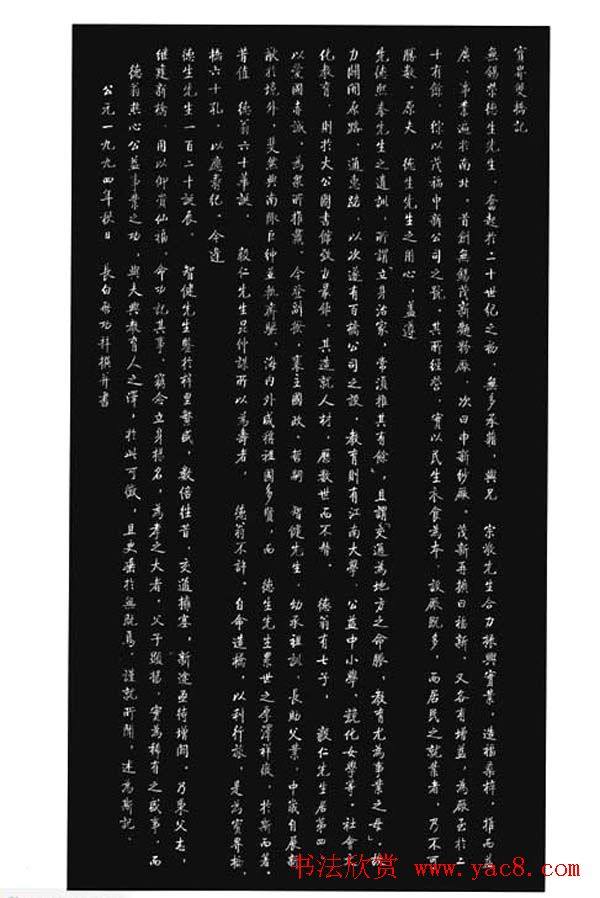 寶界雙橋記
無錫榮德生先生，奮起於二十世紀之初，無多承藉，與兄　宗敬先生合力振興實業，造福桑梓，推而益
廣，事業遍於南北。首創無錫茂新麵粉廠，次曰申新紗廠。茂新再擴曰福新，又各有增益，為廠至於二
十有餘，綜以茂福申新公司之號。其所經營，實以民生衣食為本，設廠既多，而居民之就業者，乃不可
勝數。原夫　德生先生之用心，蓋遵
先德熙泰先生之遺訓，所謂立身治家，常須推其有餘」，且謂「交通為地方之命脈，教育尤為事業之母」，故
力開闢原路，通惠路，以次遂有百橋公司之設。教育則有江南大學，公益中小學，競化女學等。社會文
化教育，則於大公圖書館致力最鉅。其造就人材，歷數世而不替。　德翁有七子，　毅仁先生居第四，
以愛國赤誠，為眾所推戴。今登副揆，襄主國政。哲嗣　智健先生，幼承祖訓，長助父業，中歲自展新
猷於境外，斐然與南陬巨紳並執齊驅。海內外咸稱祖國多賢，而　德生先生累世之厚澤祥徵，於斯而著。
昔值　德翁六十華誕，　毅仁先生昆仲謀所以為壽者，　德翁不許。自命造橋，以利行旅，是為寶界橋，
橋六十孔，以應壽紀。今逢
德生先生一百二十誕辰，　智健先生鑒於梓里繁盛，數倍往昔，交通擁塞，新途亟待增開。乃秉父志，
繼建新橋，用以仰賡仙橋，命功記其事。竊念立身揚名，為孝之大者，父子顯揚，實為稀有之盛事。而
德翁熱心公益事業之功，與夫興教育人之澤，於此可徵，且更屬於無既焉。謹就所聞，述為斯記。
公元一九九四年秋日　長白啟功拜撰并書
书法欣赏 www.yac8.com